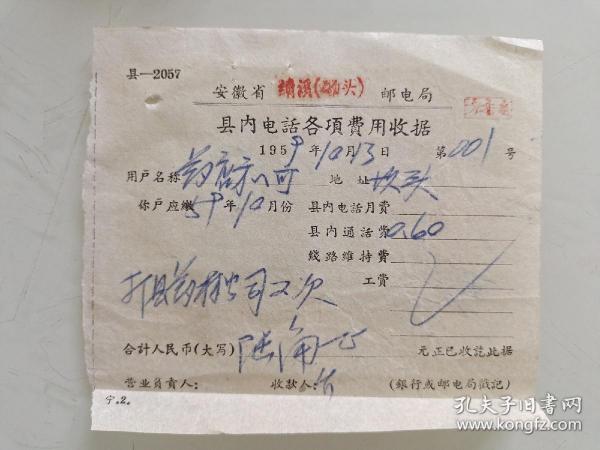 县—2057
安徽省 绩溪(硚头) 邮电局
县内电話各項費用收据
1959年10月13日 第001号
用户名称 药店 地址 坎头
你戶应繳59年10月份 县内电話月費
县内通話费 0.60
线路维持費
工費
打县药材公司2次
合計人民币(大写) 陆角 元正已收訖此据
营业員責人: 收款人: (銀行或邮电局戳記)
宁.2.
孔夫子旧書网